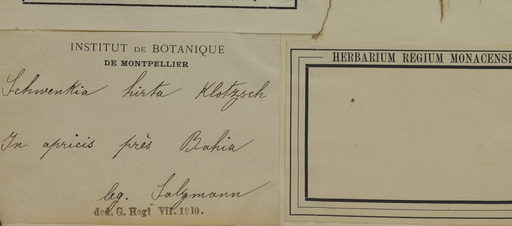 INSTITUT DE BOTANIQUE
DE MONTPELLIER
Schwenkia hirta Klotzsch
In apricis près Bahia
leg. Salzmann
ded. G. Hegi VII. 1910.
HERBARIUM REGIUM MONACENSE